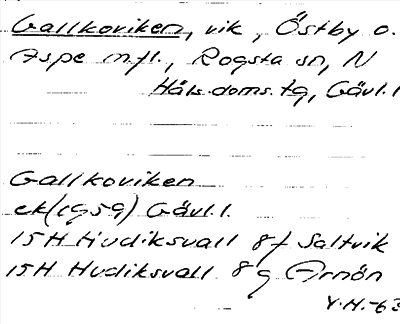 Gallkoviken, vik, Östby o.
Aspe m.fl., Rogsta sn, N
Häls. doms. tg, Gävl. l
Gallkoviken
ek (1959) Gävl. l.
15H Hudiksvall 8f Saltvik
15H Hudiksvall 8g Arnön
Y.H.-63